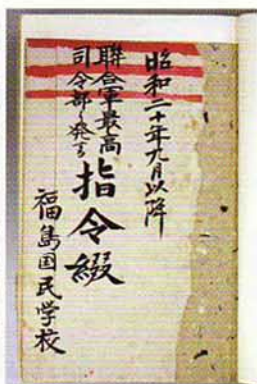 昭和二十年九月以降
聯合軍最高
司令部ゟ発する
指令綴
福島国民学校